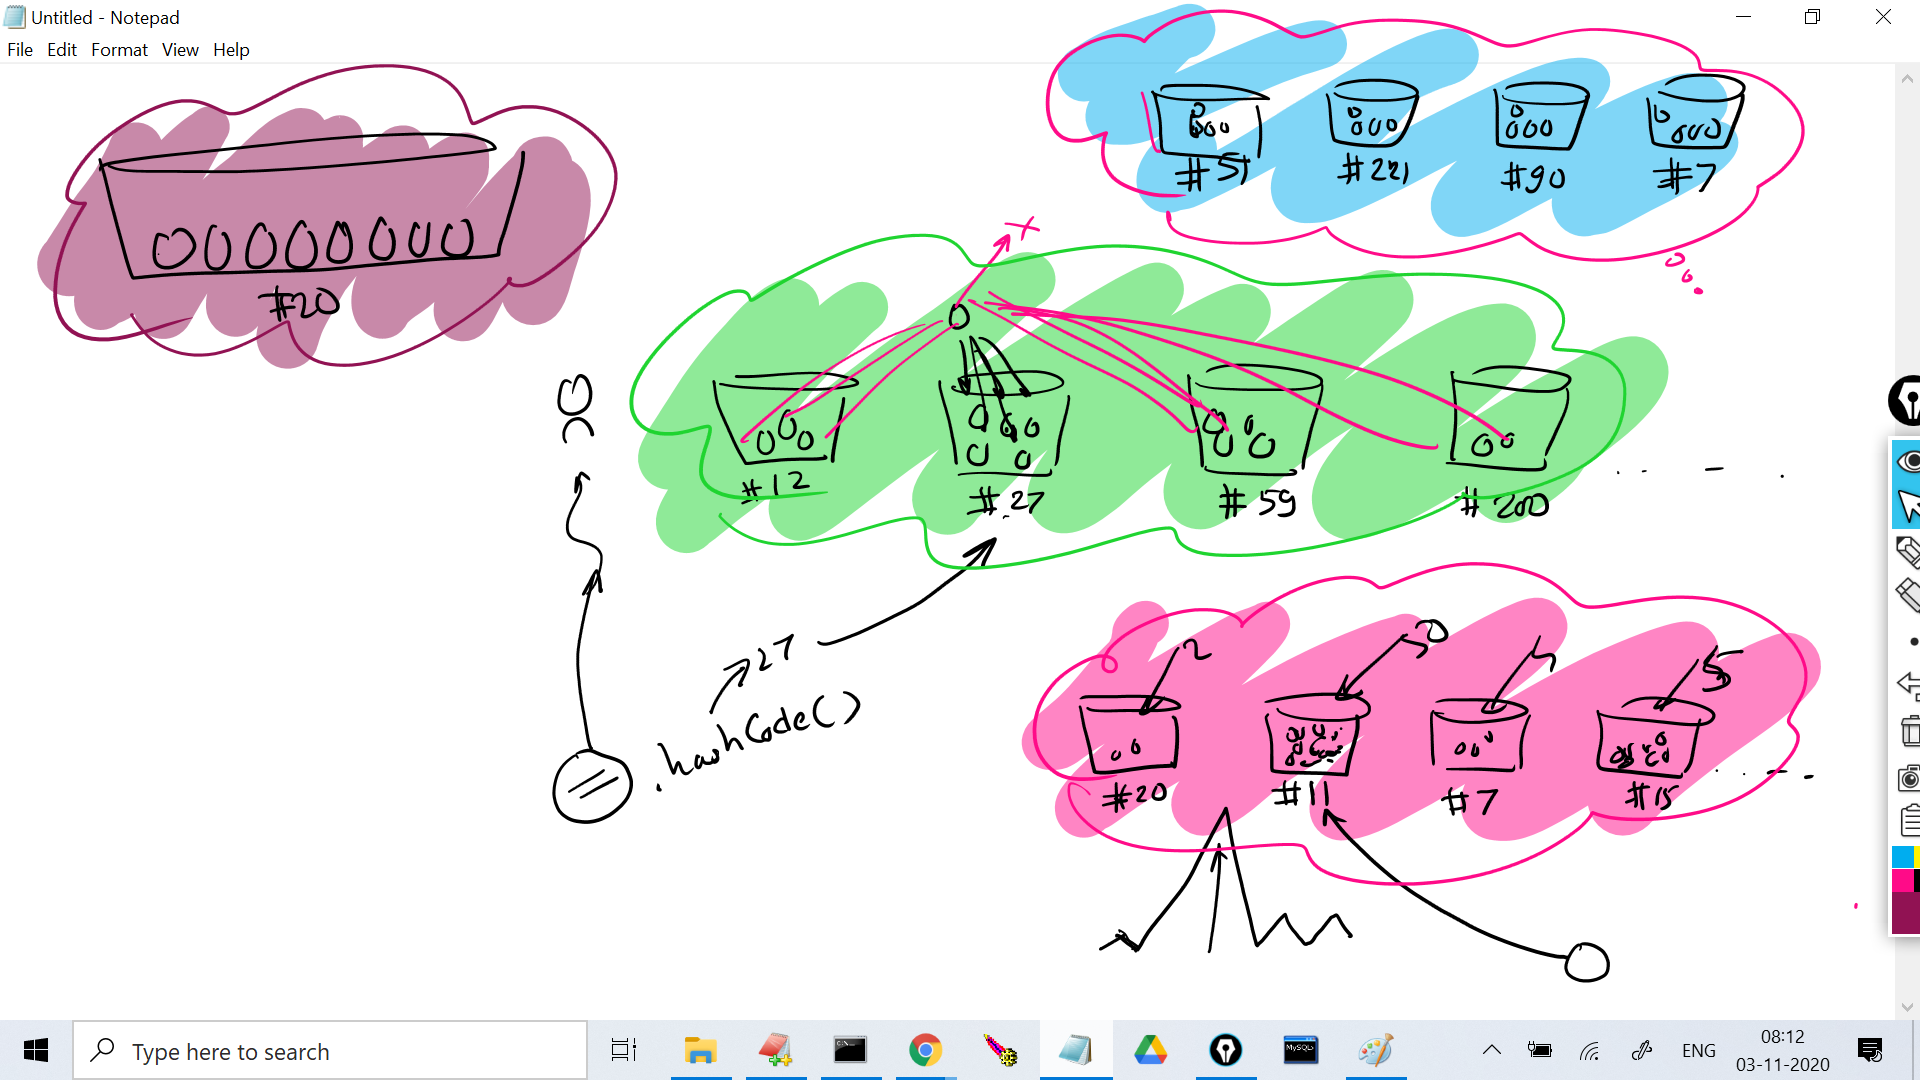 Untitled - Notepad
File Edit Format View Help
#51 #221 #90 #7
#20
#12 #27 #59 #200
27
.hashCode()
2 5
#20 #11 #7 #15
Type here to search
C:\
MySQL
ENG
08:12
03-11-2020